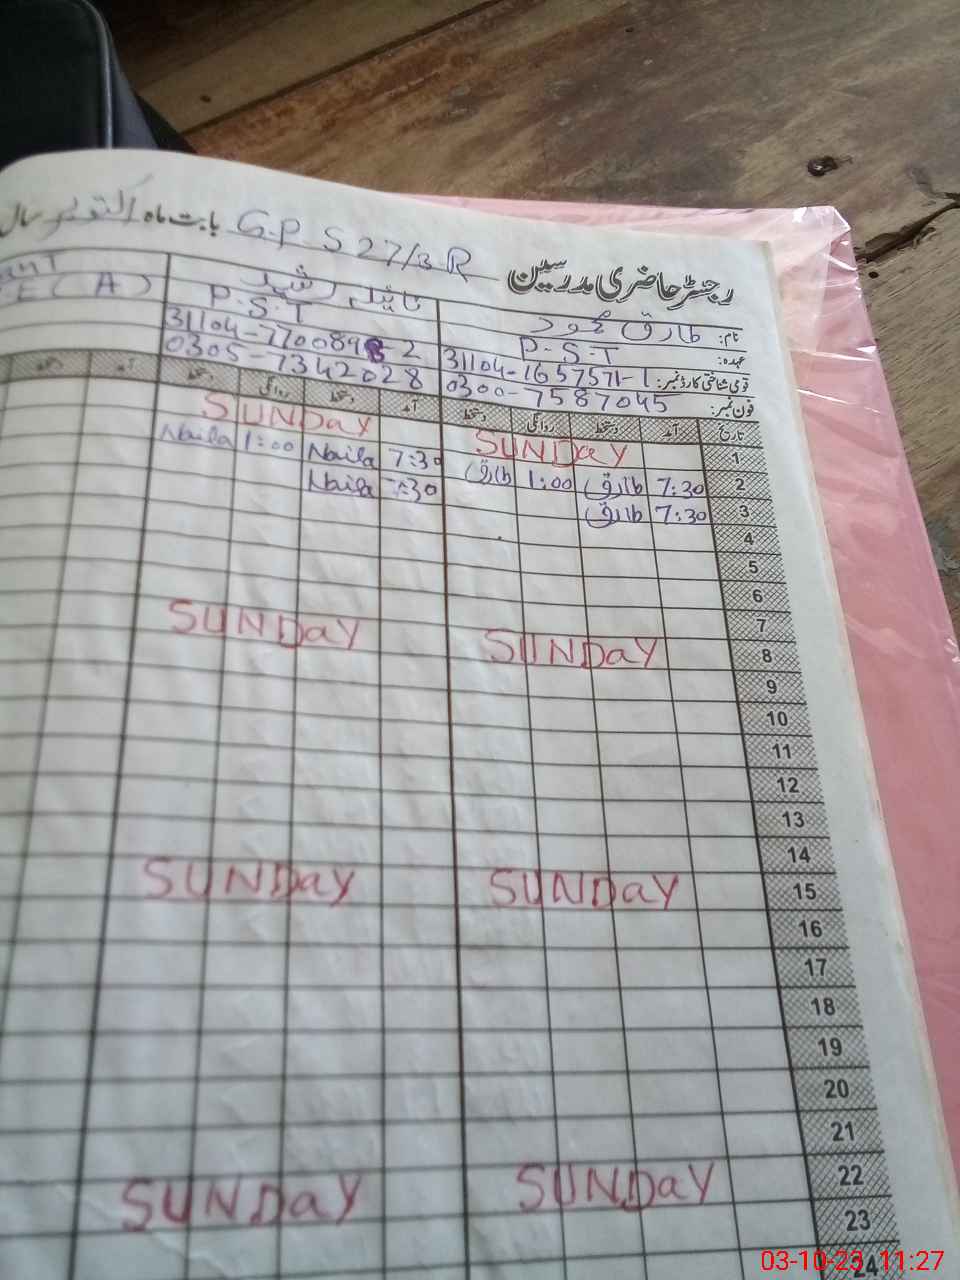 رجسٹر حاضری مدرسین G.P.S 27/3R بابت ماہ اکتوبر سال
نام: طارق محمود نائلہ رشید
عہدہ: P.S.T P.S.T E(A)
قومی شناختی کارڈ نمبر: 31104-1657571-1 31104-7700898-2
فون نمبر: 0300-7587045 0305-7342028
تاریخ آمد دستخط روانگی دستخط آمد دستخط روانگی دستخط آمد
1 SUNDay SUNDay
2 7:30 طارق 1:00 طارق 7:30 Naila 1:00 Naila
3 7:30 طارق 7:30 Naila
4
5
6
7
8 SUNDay SUNDay
9
10
11
12
13
14
15 SUNDAY SUNDay
16
17
18
19
20
21
22 SUNDay SUNDAY
23
24
03-10-23 11:27